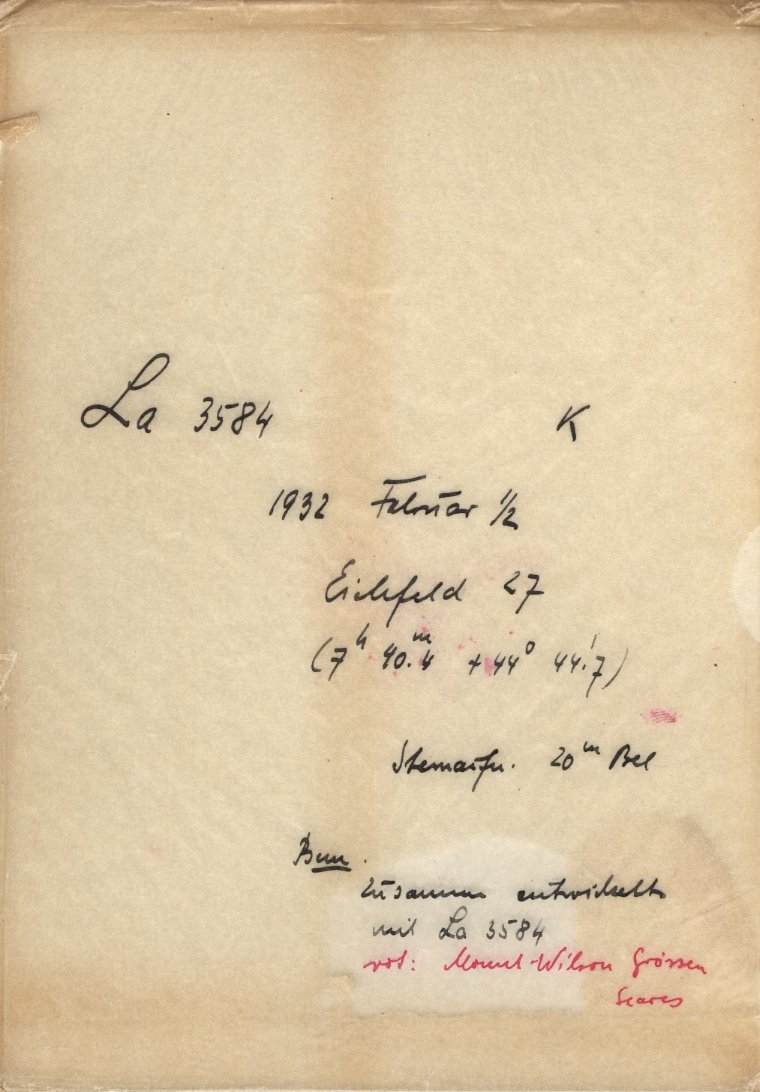 La 3584 K
1932 Februar 1/2
Eichfeld 27
(7ʰ 40.ᵐ4 +44° 44.'7)
Sternaufn. 20ᵐ Bel
Bem.
zusammen entwickelt
mit La 3584
rot: Mount-Wilson Grössen
Seares